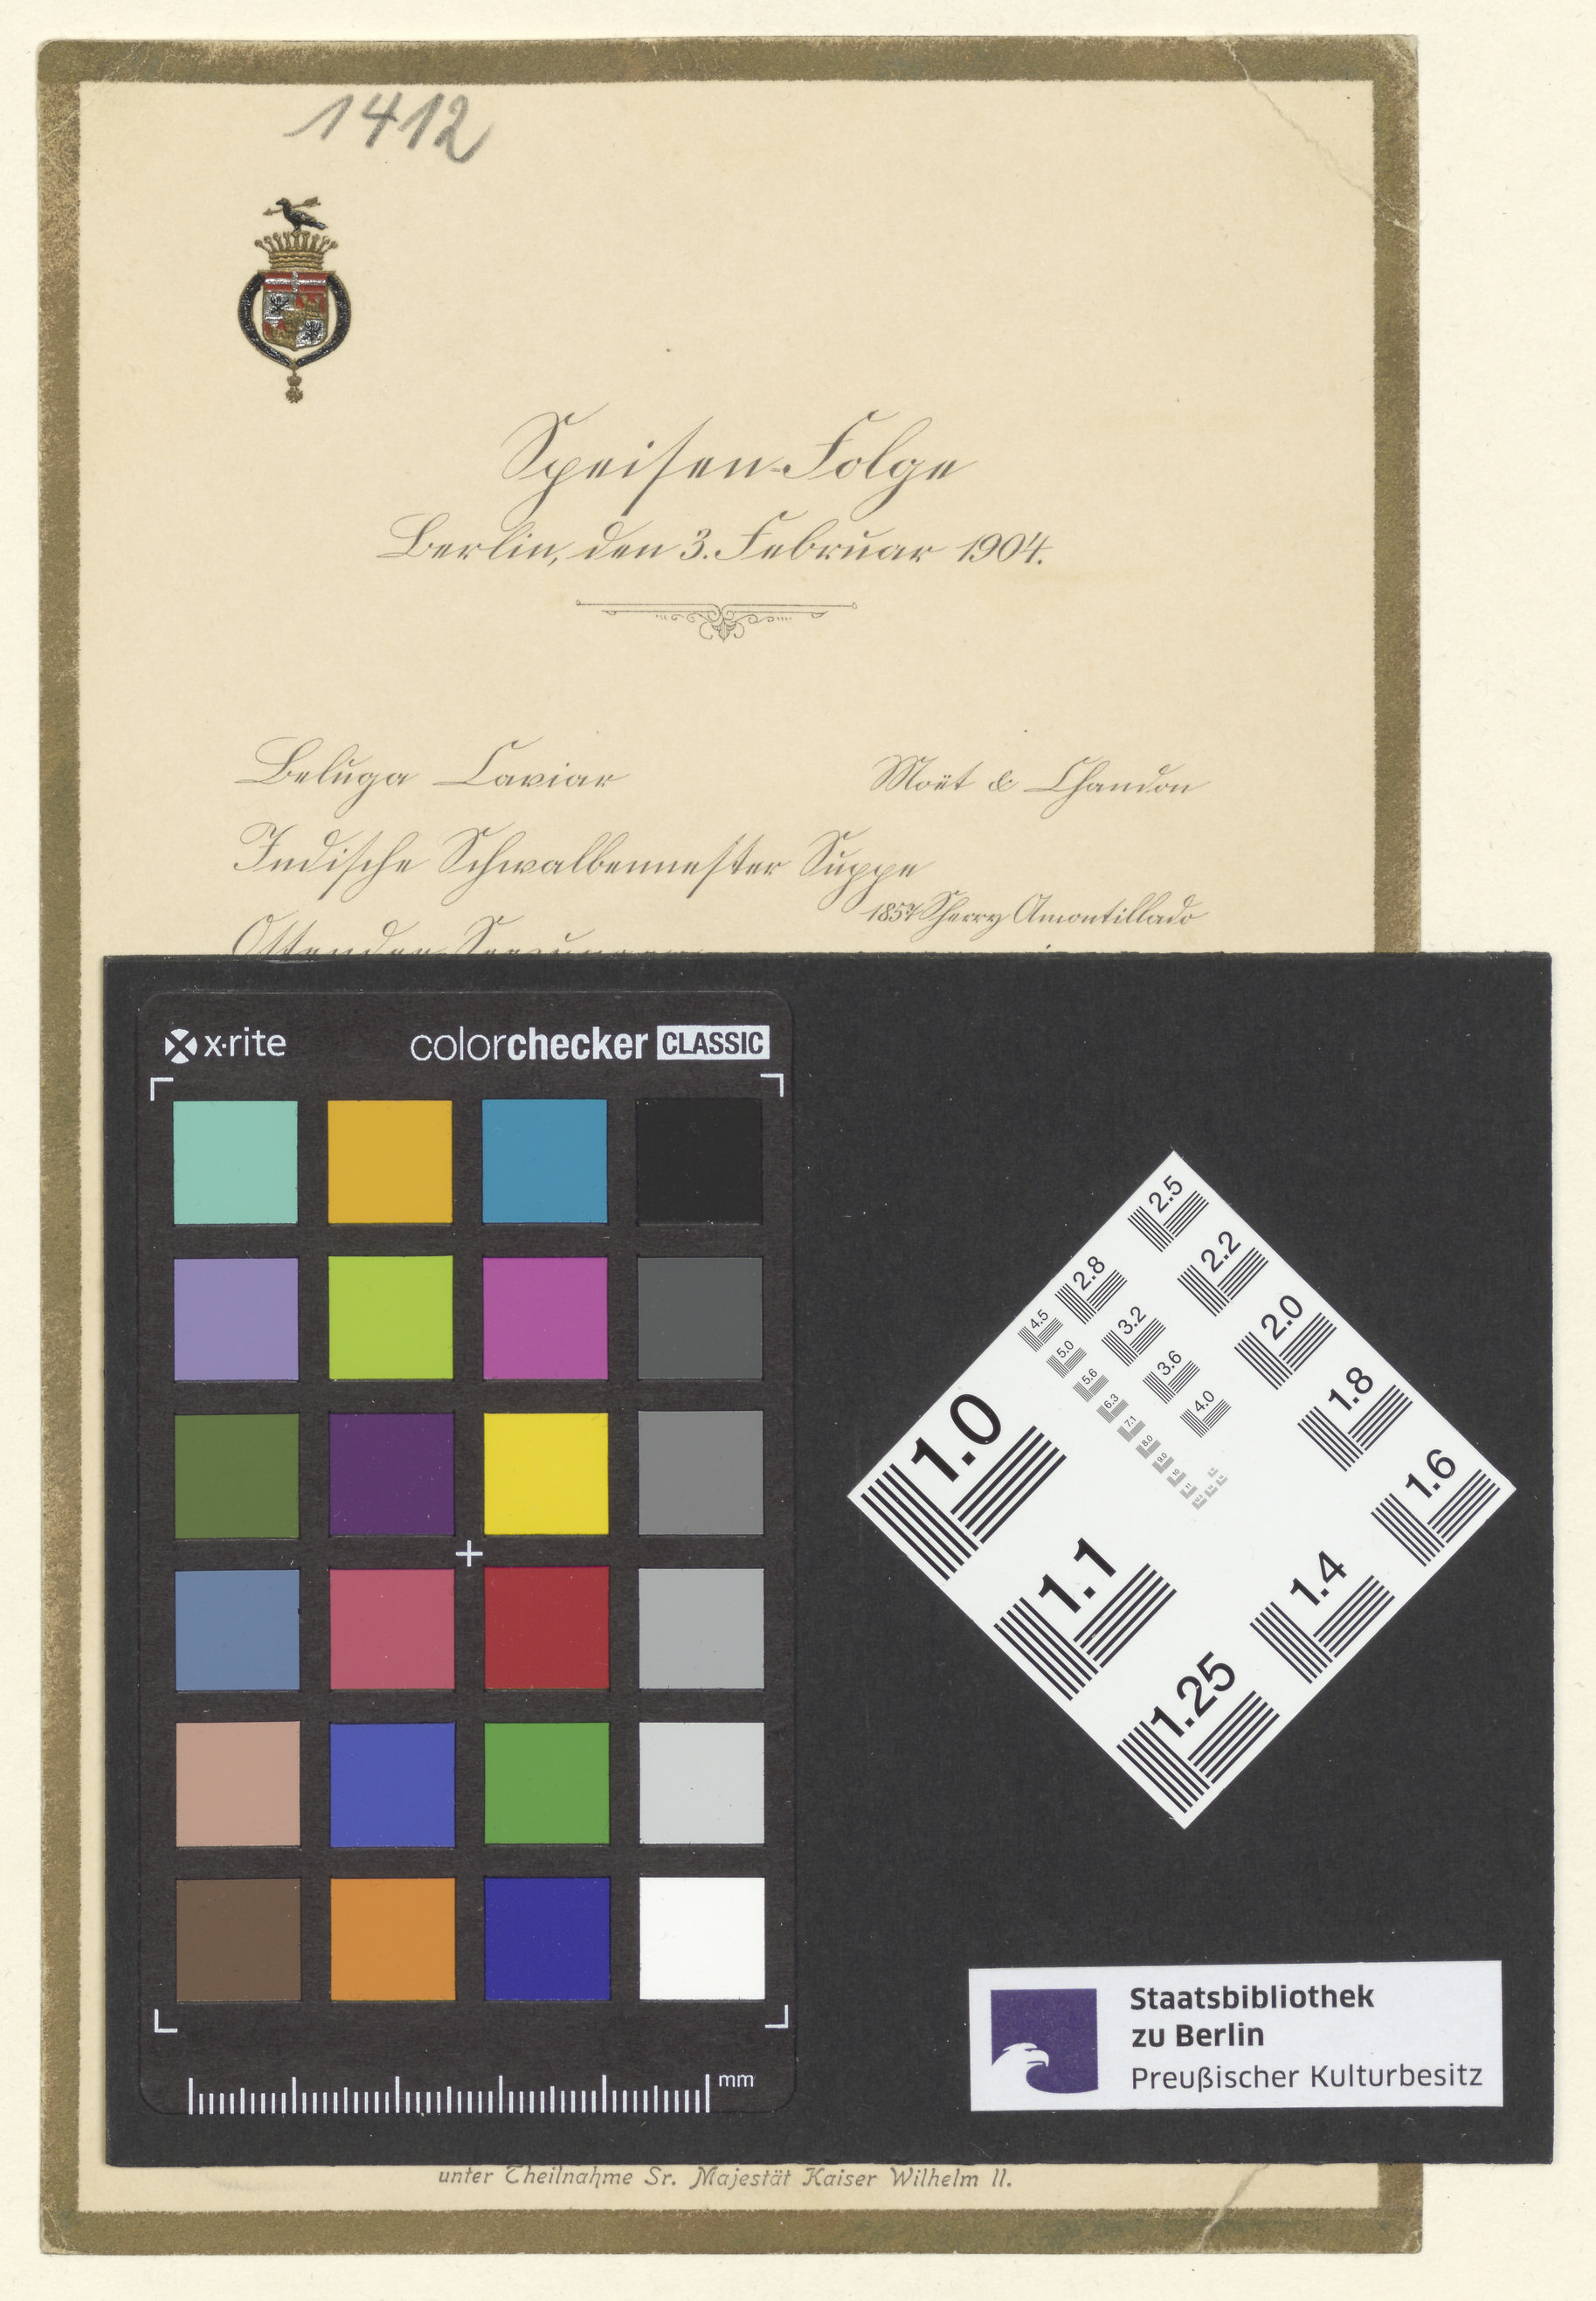 1412
Speisen-Folge
Berlin, den 3. Februar 1904.
Beluga Caviar
Moët & Chandon
Indische Schwalbennester Suppe
1857 Sherry Amontillado
Ostender Seezungen
x·rite
colorchecker CLASSIC
2.5
2.2
2.8
2.0
3.2
4.5
1.8
3.6
5.0
5.6
4.0
6.3
1.0
7.1
8.0
9.0
10
11
1.6
1.1
1.4
1.25
mm
Staatsbibliothek
zu Berlin
Preußischer Kulturbesitz
unter Theilnahme Sr. Majestät Kaiser Wilhelm II.